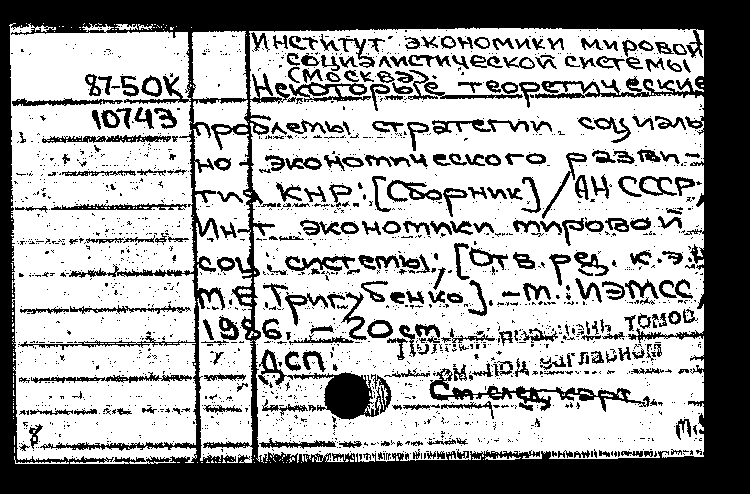 Институт экономики мировой
социалистической системы
(Москва).
87-5ОК Некоторые теоретические
10743
проблемы стратегии социаль
но-экономического разви-
тия КНР: [Сборник] / АН СССР,
Ин-т экономики мировой
соц. системы; [Отв. ред. к.э.н
М.Е. Тригубенко]. – М.: ИЭМСС,
1986. – 20 см.
Полный перечень томов
ДСП.
см. под заглавном
См. след. карт.
8